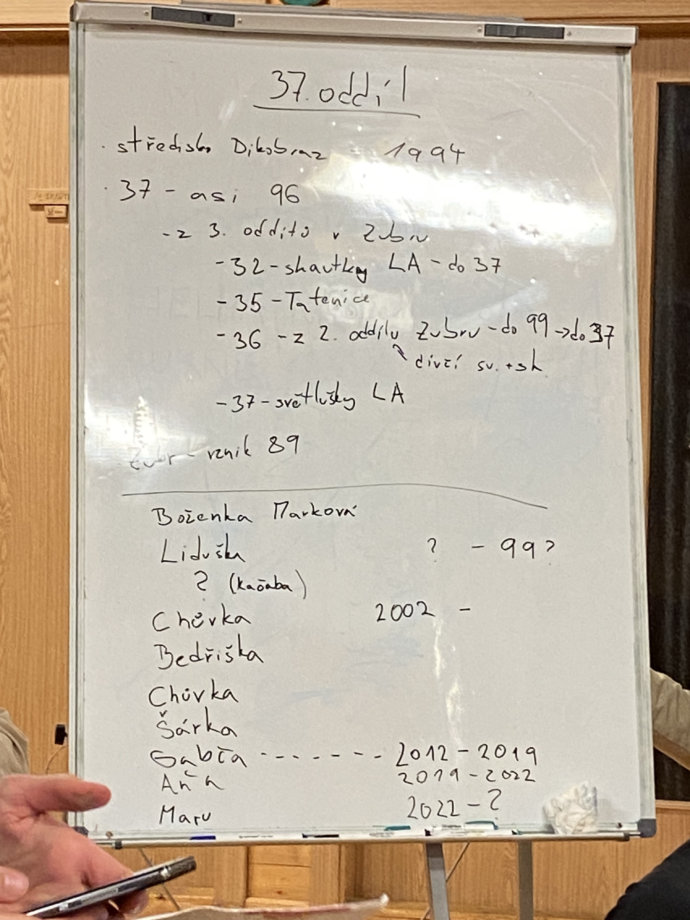 37. oddíl
· středisko Dikobraz - 1994
· 37 - asi 96
- z 3. oddílů v Zubru
- 32 - skautky LA - do 37
- 35 - Tatenice
- 36 - z 2. oddílu Zubru - do 99 → do 37
dívčí sv. + sk.
- 37 - světlušky LA
Zubr - vznik 89
Boženka Marková
Liduška ? - 99?
? (kačaba)
Chůvka 2002 -
Bedřiška
Chůvka
Šárka
Gabča ------- 2012 - 2019
Anča 2019 - 2022
Maru 2022 - ?